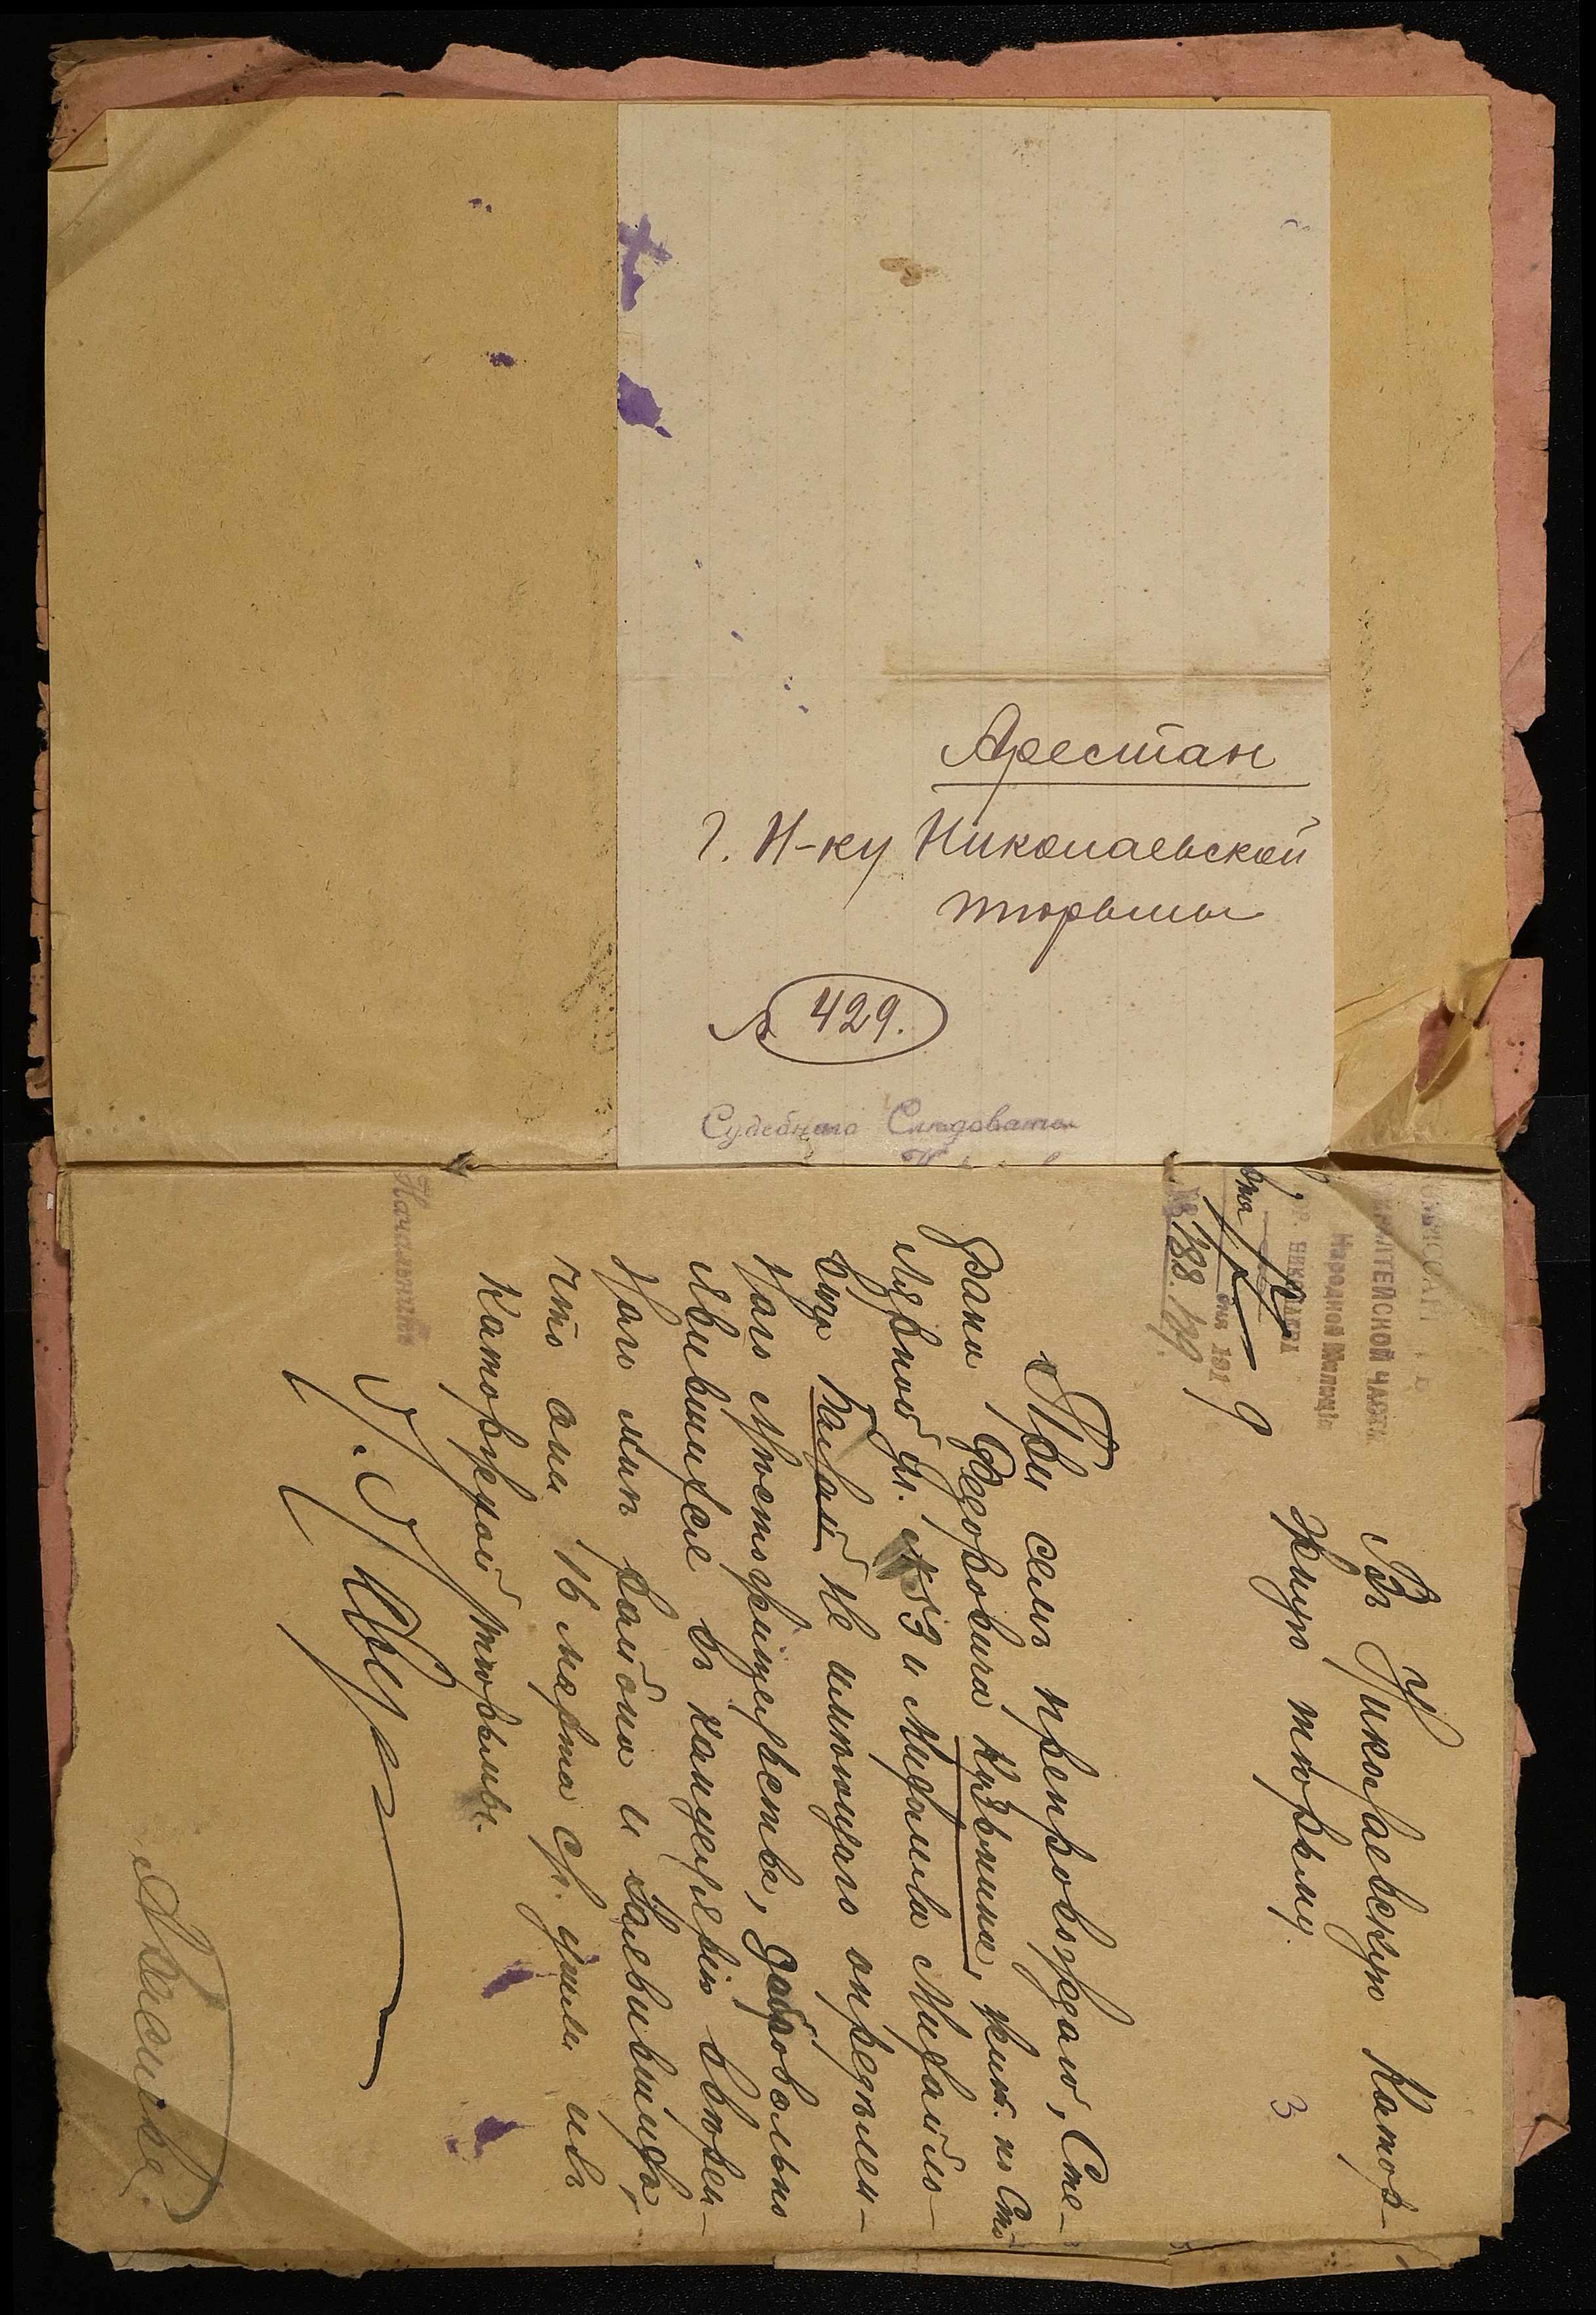 Арестан
Г. Н-ку Николаевской
тюрьмы
№ 429.
Судебнаго Следовате
АДМИРАЛТЕЙСКОЙ ЧАСТИ
Народной Милиціи
ГОР. НИКОЛАЕВА
дня 191 9
№ 188.
Въ Николаевскую Катор-
жную тюрьму.
3
При семъ препровождаю, Сте-
вана Федоровича Кузьмина, жит. по Сто-
лярной ул. № 53 и Михаила Михайло-
вича не имеющаго определен-
наго местожительства, добровольно
явившихся въ канцелярію вверен-
наго мне района и заявившихъ,
что они 16 марта с/г. ушли изъ
Каторжной тюрьмы.
Начальникъ